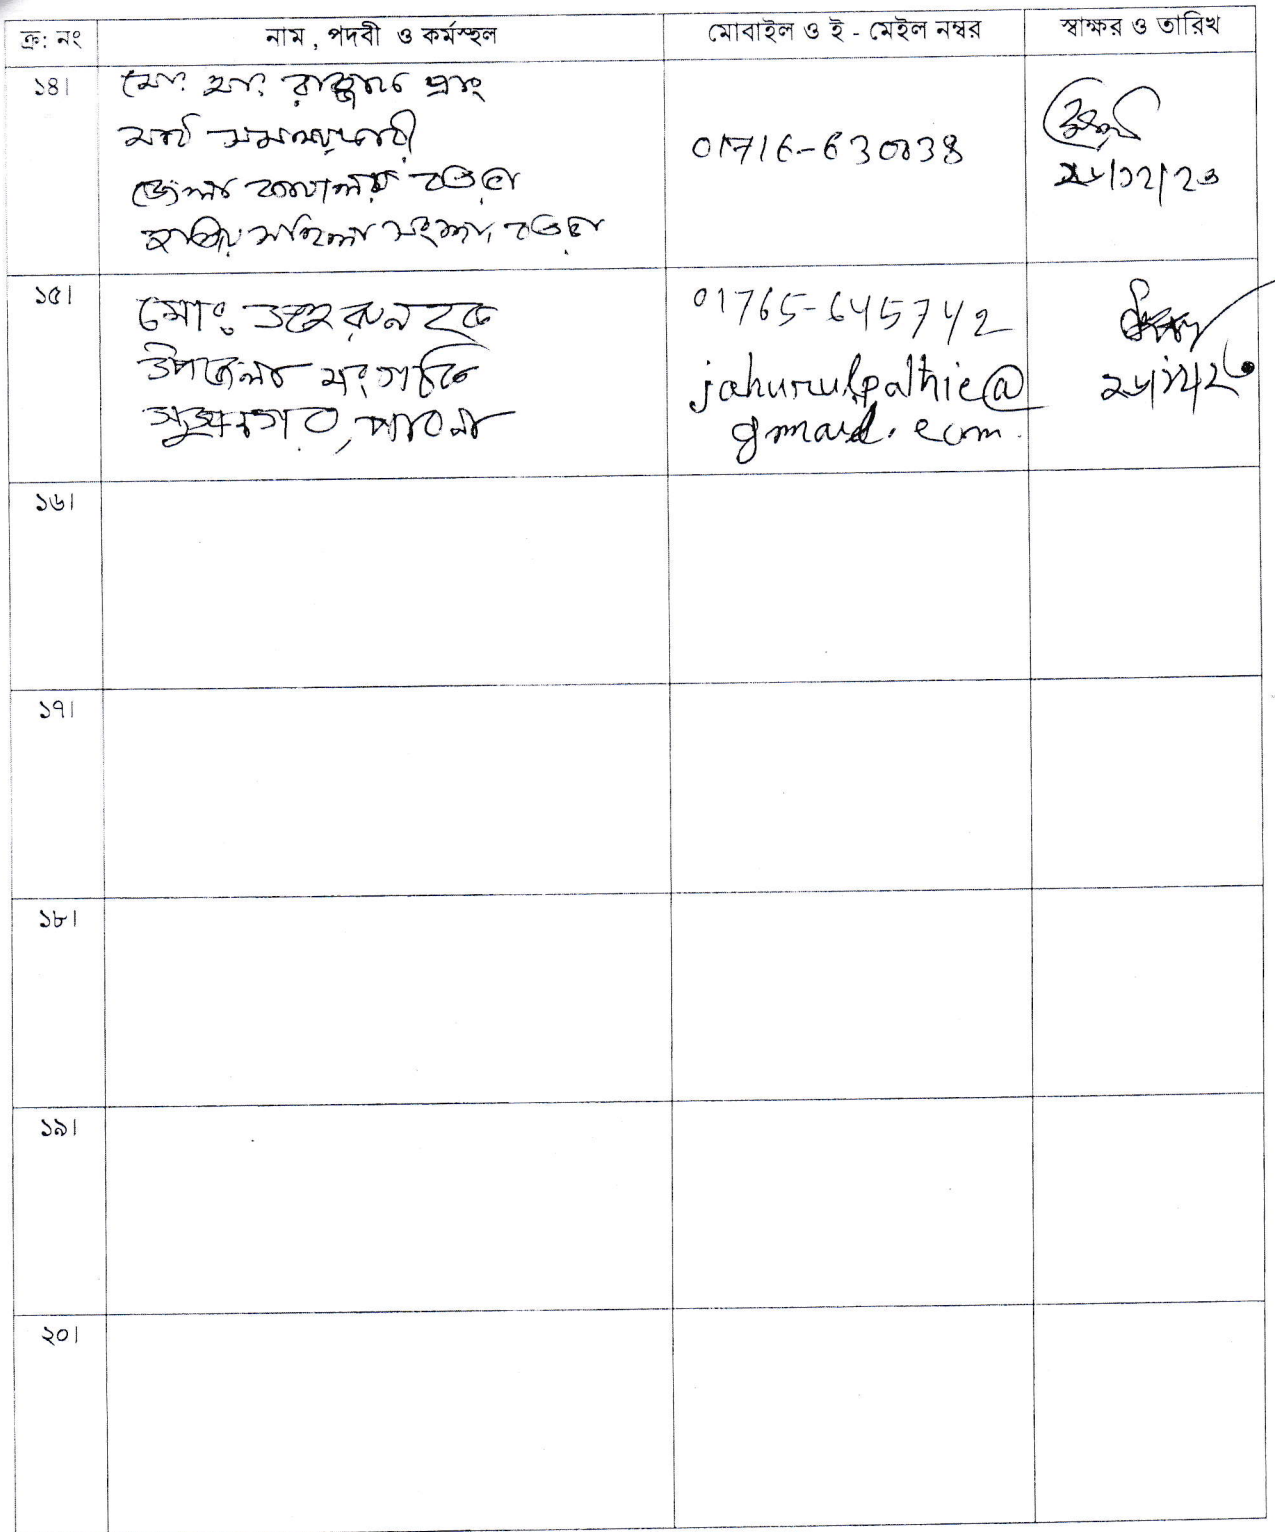 ক্র: নং নাম, পদবী ও কর্মস্থল মোবাইল ও ই - মেইল নম্বর স্বাক্ষর ও তারিখ
১৪। মো: মা: রাজ্জাক প্রাং
মাঠ সমন্বয়কারী
জেলা কার্যালয় বগুড়া
জাতীয় মহিলা সংস্থা, বগুড়া
01716-630838
২৮/১২/২৩
১৫। মোঃ জহুরুল হক
উপজেলা
সুজানগর, পাবনা
01765-645742
jahurulpathic@
gmail.com
২৮/১২/২৩
১৬।
১৭।
১৮।
১৯।
২০।